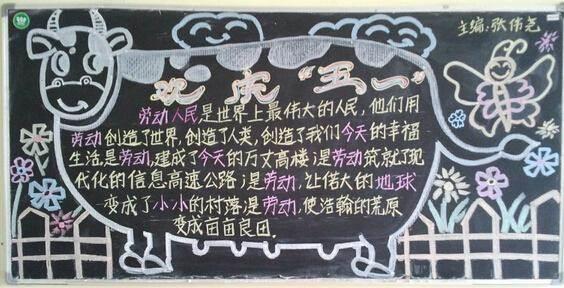 主编:张伟尧
欢庆"五一"
劳动人民是世界上最伟大的人民,他们用
劳动创造了世界,创造了人类,创造了我们今天的幸福
生活是劳动,建成了今天的万丈高楼;是劳动筑就了现
代化的信息高速公路;是劳动,让偌大的地球
变成了小小的村落是劳动,使浩翰的荒原
变成亩亩良田.